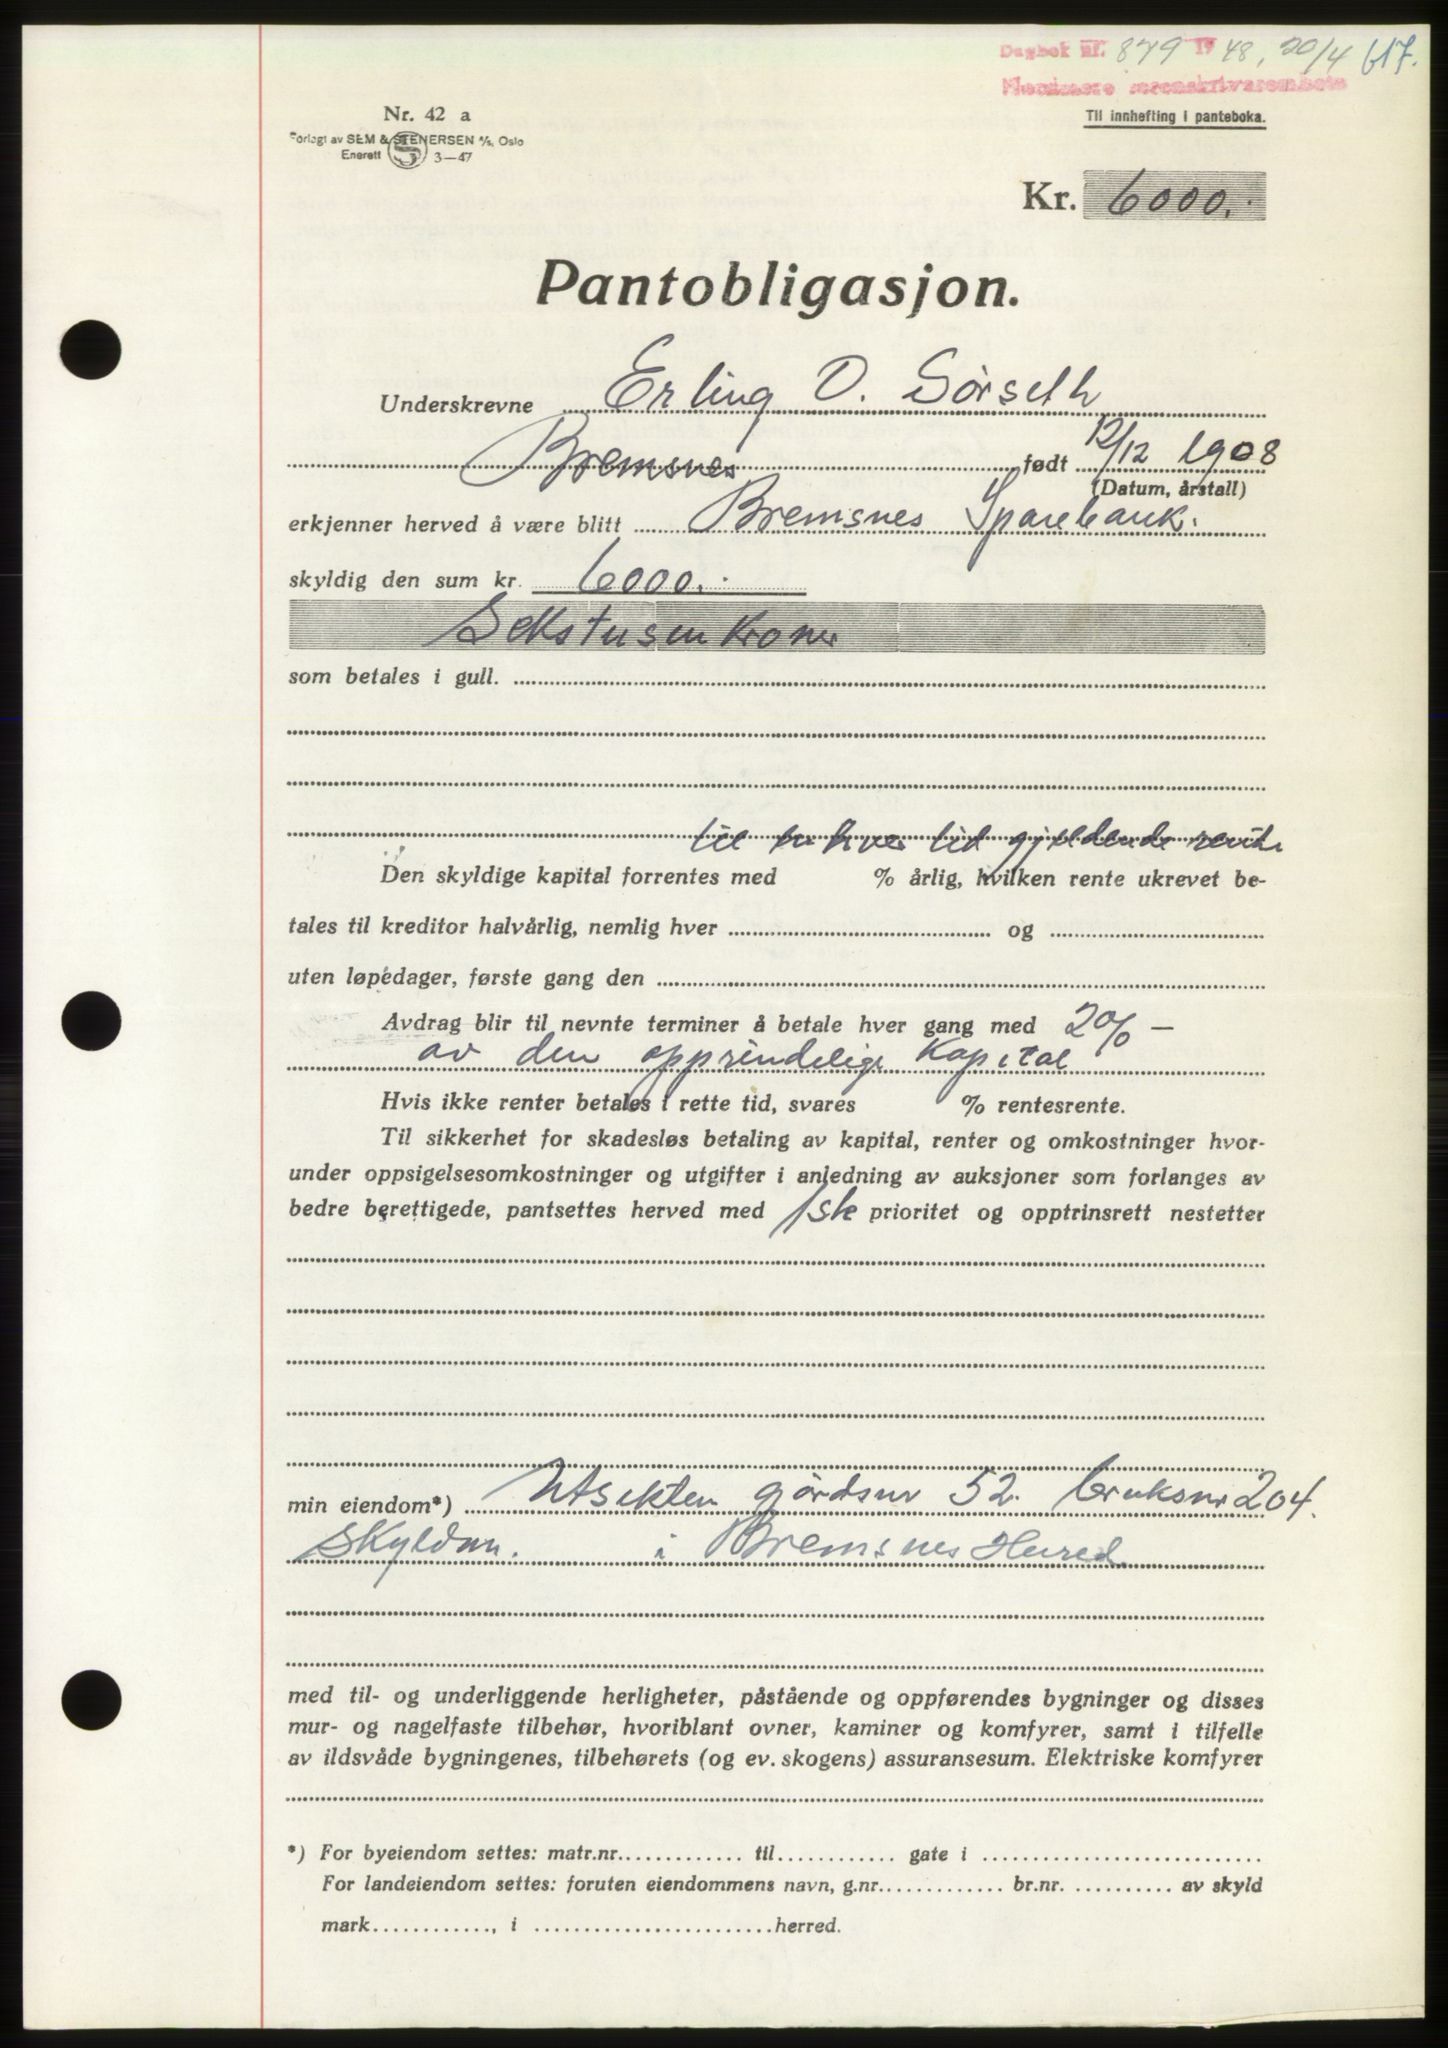 Dagbok nr. 879 1948, 20/4 617.
Nordmøre sorenskriverembete
Nr. 42 a
Forlagt av SEM & STENERSEN A/S, Oslo
Enerett 3—47
Til innhefting i panteboka.
Kr. 6000.-
Pantobligasjon.
Underskrevne Erling O. Sörseth
Bremsnes født 12/12 1908
(Datum, årstall)
erkjenner herved å være blitt Bremsnes Sparebank.
skyldig den sum kr. 6000.-
Sekstusen Kroner
som betales i gull.
til en hver tid gjeldende rente
Den skyldige kapital forrentes med % årlig, hvilken rente ukrevet be-
tales til kreditor halvårlig, nemlig hver og
uten løpedager, første gang den
Avdrag blir til nevnte terminer å betale hver gang med 20% —
av den opprindelige Kapital
Hvis ikke renter betales i rette tid, svares % rentesrente.
Til sikkerhet for skadesløs betaling av kapital, renter og omkostninger hvor-
under oppsigelsesomkostninger og utgifter i anledning av auksjoner som forlanges av
bedre berettigede, pantsettes herved med 1ste prioritet og opptrinsrett nestetter
min eiendom*) Utsikten gårdsnr 52. bruksnr 204.
Skyldnr. i Bremsnes Herred
med til- og underliggende herligheter, påstående og oppførendes bygninger og disses
mur- og nagelfaste tilbehør, hvoriblant ovner, kaminer og komfyrer, samt i tilfelle
av ildsvåde bygningenes, tilbehørets (og ev. skogens) assuransesum. Elektriske komfyrer
*) For byeiendom settes: matr.nr. til gate i
For landeiendom settes: foruten eiendommens navn, g.nr. br.nr. av skyld
mark , i herred.